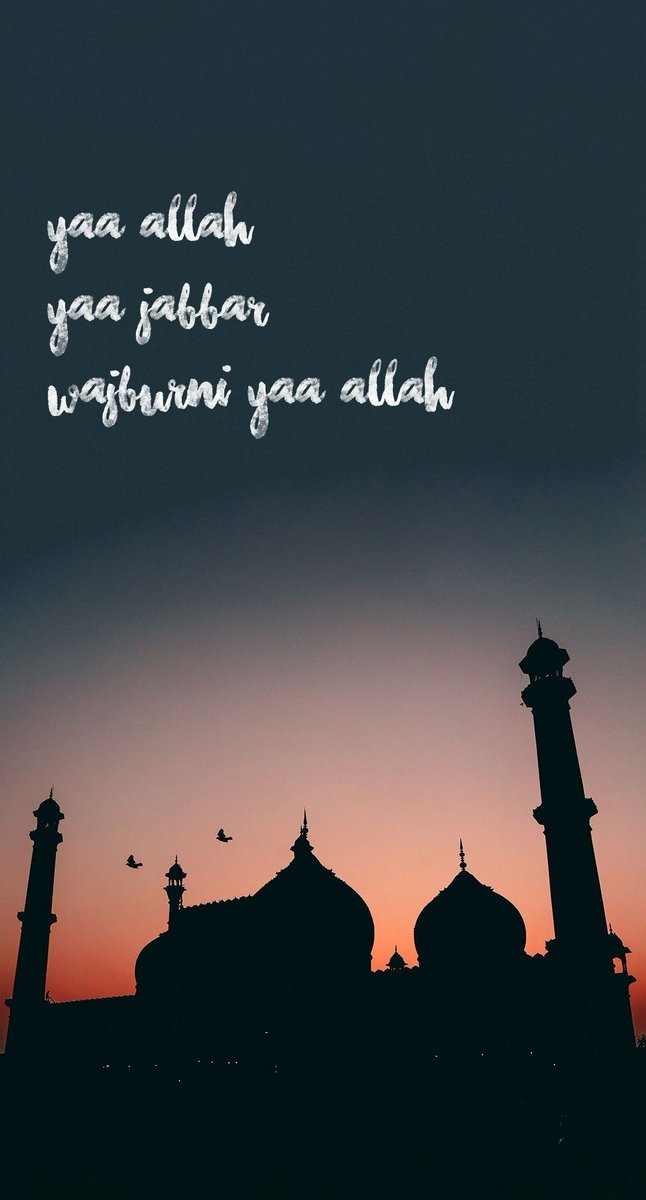 yaa allah
yaa jabbar
wajburni yaa allah